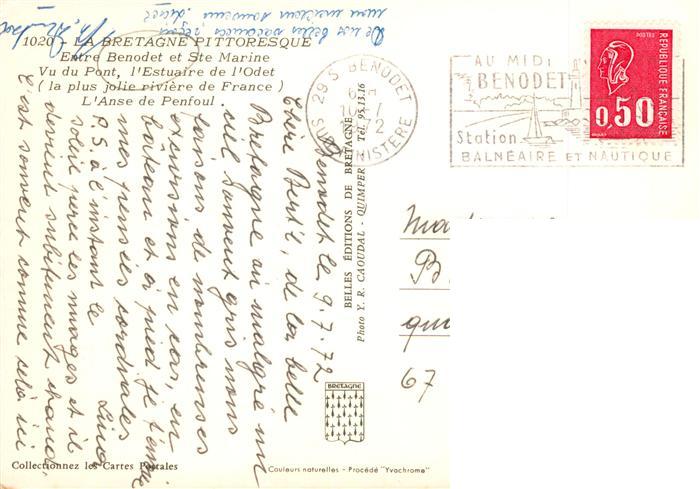 De nos belles vacances, reçois
mon meilleur souvenir.
1020 - LA BRETAGNE PITTORESQUE
Entre Benodet et Ste Marine
Vu du Pont, l'Estuaire de l'Odet
(la plus jolie rivière de France)
L'Anse de Penfoul.
Benodet le 9.7.72
Chère de la belle
Bretagne où malgré un
ciel souvent gris nous
faisons de nombreuses
excursions en car, en
bateau et à pied je t'envoie
mes pensées cordiales
P.S. à l'instant le
soleil perce les nuages et il
devient subitement chaud.
C'est souvent comme cela ici
BELLES ÉDITIONS DE BRETAGNE
Photo Y. R. CAOUDAL - QUIMPER Tél. 95.13.16
29 S BENODET
72
SUD FINISTÈRE
AU MIDI
BENODET
Station
BALNÉAIRE ET NAUTIQUE
POSTES
RÉPUBLIQUE FRANÇAISE
0,50
67
BRETAGNE
Collectionnez les Cartes Postales
Couleurs naturelles - Procédé "Yvachrome"